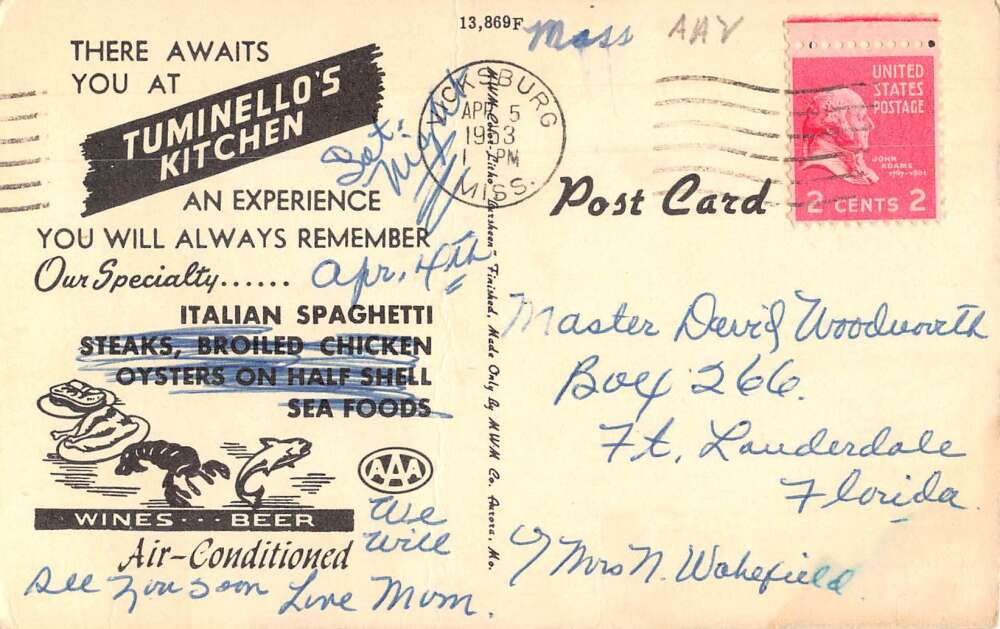 13,869F
Mass AAV
THERE AWAITS
YOU AT
TUMINELLO'S
KITCHEN
AN EXPERIENCE
YOU WILL ALWAYS REMEMBER
Our Specialty......
ITALIAN SPAGHETTI
STEAKS, BROILED CHICKEN
OYSTERS ON HALF SHELL
SEA FOODS
AAA
WINES... BEER
Air-Conditioned
Sat.
Night
Apr. 4th
We
will
See you soon
Love Mom.
VICKSBURG
APR 5
1953
1 PM
MISS.
Finished, Made Only By M.W.M. Co. Aurora, Mo.
Post Card
UNITED
STATES
POSTAGE
JOHN
ADAMS
1797-1801
2 CENTS 2
Master David Woodworth
Box 266.
Ft. Lauderdale
Florida
c/ Mrs N. Wakefield